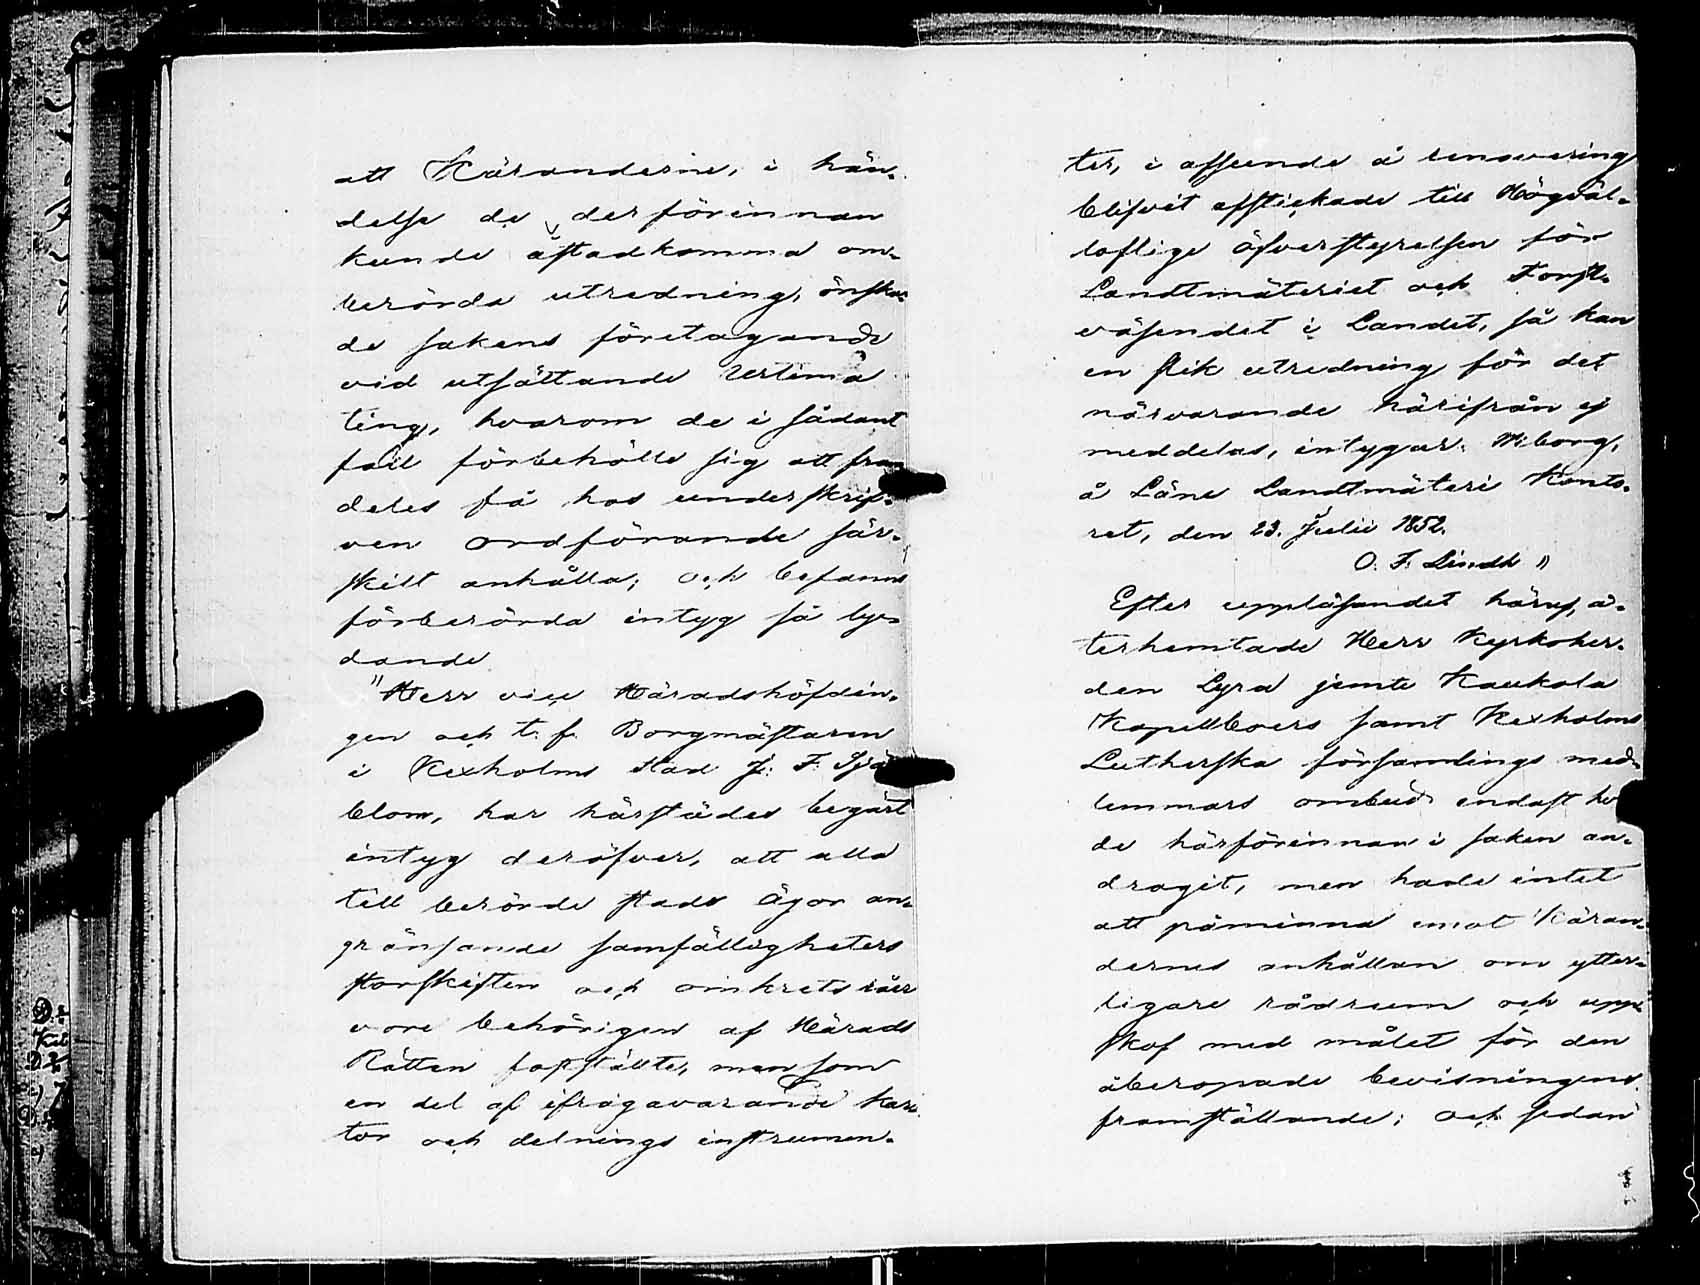 att Käranderne, i hän-
delse de derförinnan
kunde åstadkomma om-
berörda utredning, önska-
de sakens företagande
vid utsättande Urtima
ting, hvarom de i sådant
fall förbehöllo sig att fram
deles få hos underskrif-
ven ordförande sär-
skilt anhålla; och befanns
förberörda intyg så ly-
dande
"Herr vice Häradshöfdin-
gen och t. f. Borgmästaren
i Kexholms stad J. F. Sjö
blom, har härstädes begärt
intyg deröfver, att alla
till berörde stads ägor an-
gränsande samfälligheters
storskiften och omkrets råer
vore behörigen af Härads
Rätten fastställte, men som
en del af ifrågavarande kar-
tor och delnings instrumen-
ter, i afseende å renovering
blifvit afstickade till Högväl-
loflige öfverstyrelsen för
Landtmäteriet och Forst-
väsendet i Landet, så kan
en slik utredning för det
närvarande härifrån ej
meddelas, intygar. Wiborg,
å Läne Landtmäteri Konto-
ret, den 23. Julii 1852.
O. F. Lindh "
Efter uppläsandet häraf, å-
terhemtade Herr Kyrkoher-
den Lyra jemte Kaukola
Kapellboers samt Kexholms
Lutherska församlings med-
lemmars ombud endast hvad
de härförinnan i saken an-
dragit, men hade intet
att påminna emot Käran-
dernes anhållan om ytter-
ligare rådrum och upp-
skof med målet för den
åberopade bevisningens
framställande; och sedan